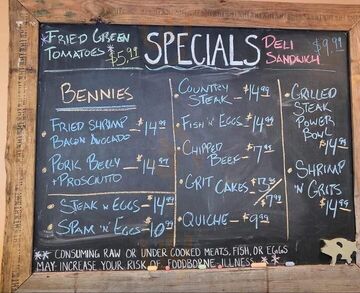 *FRIED GREEN
TOMATOES* $5.99
SPECIALS
DELI
SANDWICH
$9.99
BENNIES
• FRIED SHRIMP
BACON AVOCADO - $14.99
• PORK BELLY
+ PROSCIUTTO - $14.99
• STEAK N' EGGS - $14.99
• SPAM 'N' EGGS - 10.99
• COUNTRY
STEAK - $14.99
• FISH 'N' EGGS - $14.99
• CHIPPED
BEEF - $7.99
• GRIT CAKES - $13.99 / $7.99
• QUICHE - $9.99
• GRILLED
STEAK
POWER
BOWL
$14.99
• SHRIMP
'N GRITS
$14.99
** CONSUMING RAW OR UNDER COOKED MEATS, FISH, OR EGGS
MAY INCREASE YOUR RISK OF FOODBORNE ILLNESS **